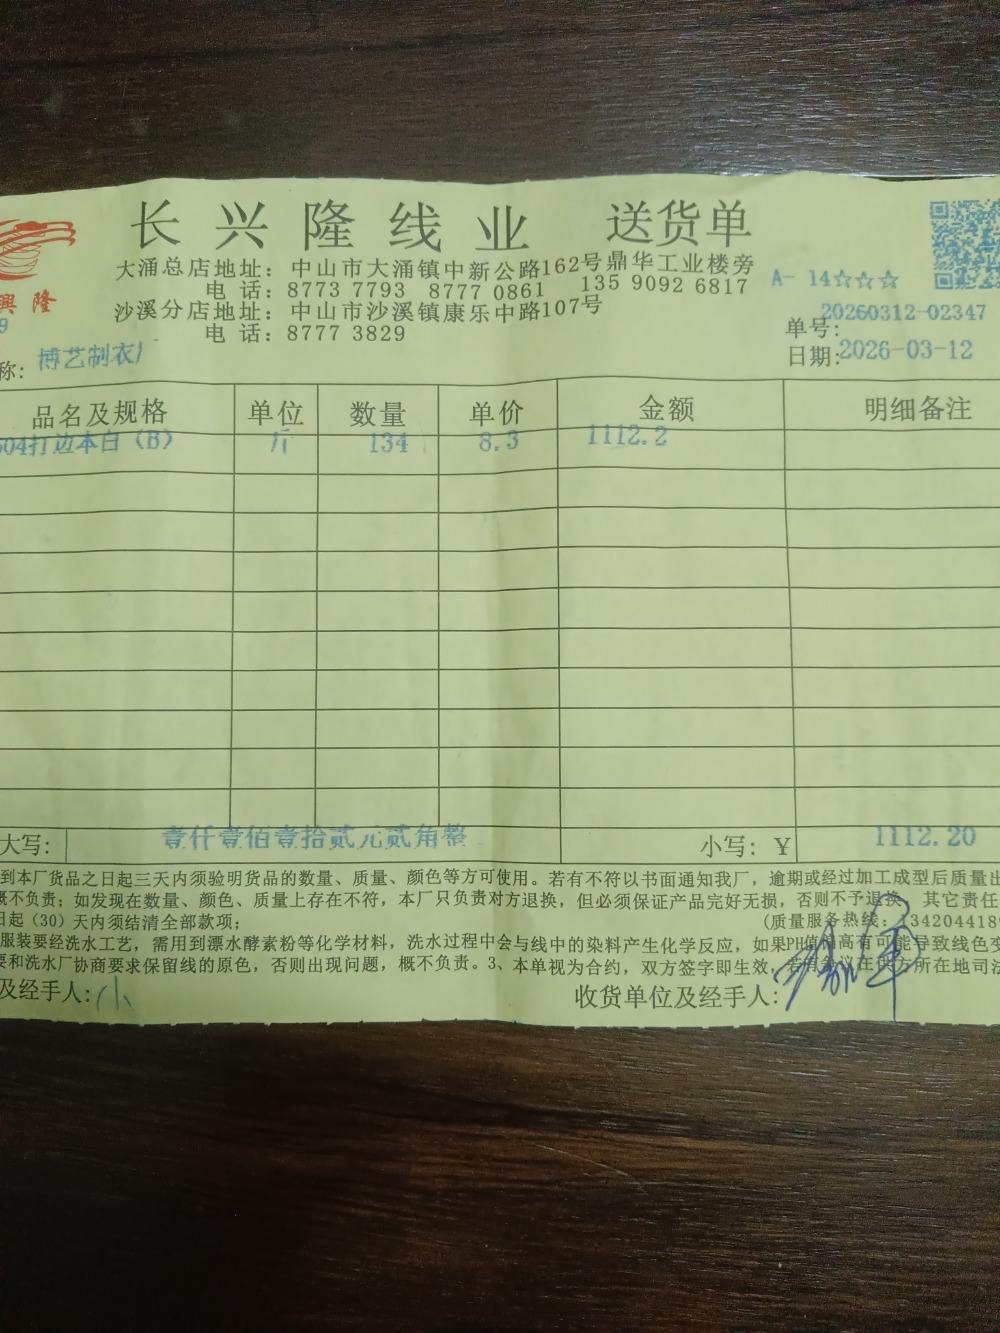 长兴隆线业 送货单
大涌总店地址：中山市大涌镇中新公路162号鼎华工业楼旁
电 话：8773 7793 8777 0861 135 9092 6817
沙溪分店地址：中山市沙溪镇康乐中路107号
电 话：8777 3829
興隆
9
A- 14☆☆☆
单号：20260312-02347
日期：2026-03-12
称：博艺制衣厂
品名及规格 单位 数量 单价 金额 明细备注
604打边本白（B） 斤 134 8.3 1112.2
大写： 壹仟壹佰壹拾贰元贰角整 小写：￥ 1112.20
到本厂货品之日起三天内须验明货品的数量、质量、颜色等方可使用。若有不符以书面通知我厂，逾期或经过加工成型后质量出
概不负责；如发现在数量、颜色、质量上存在不符，本厂只负责对方退换，但必须保证产品完好无损，否则不予退换，其它责任
日起（30）天内须结清全部款项； （质量服务热线：1342044189
服装要经洗水工艺，需用到漂水酵素粉等化学材料，洗水过程中会与线中的染料产生化学反应，如果PH值偏高有可能导致线色变
要和洗水厂协商要求保留线的原色，否则出现问题，概不负责。3、本单视为合约，双方签字即生效，若有争议在供方所在地司法
及经手人：小 收货单位及经手人：